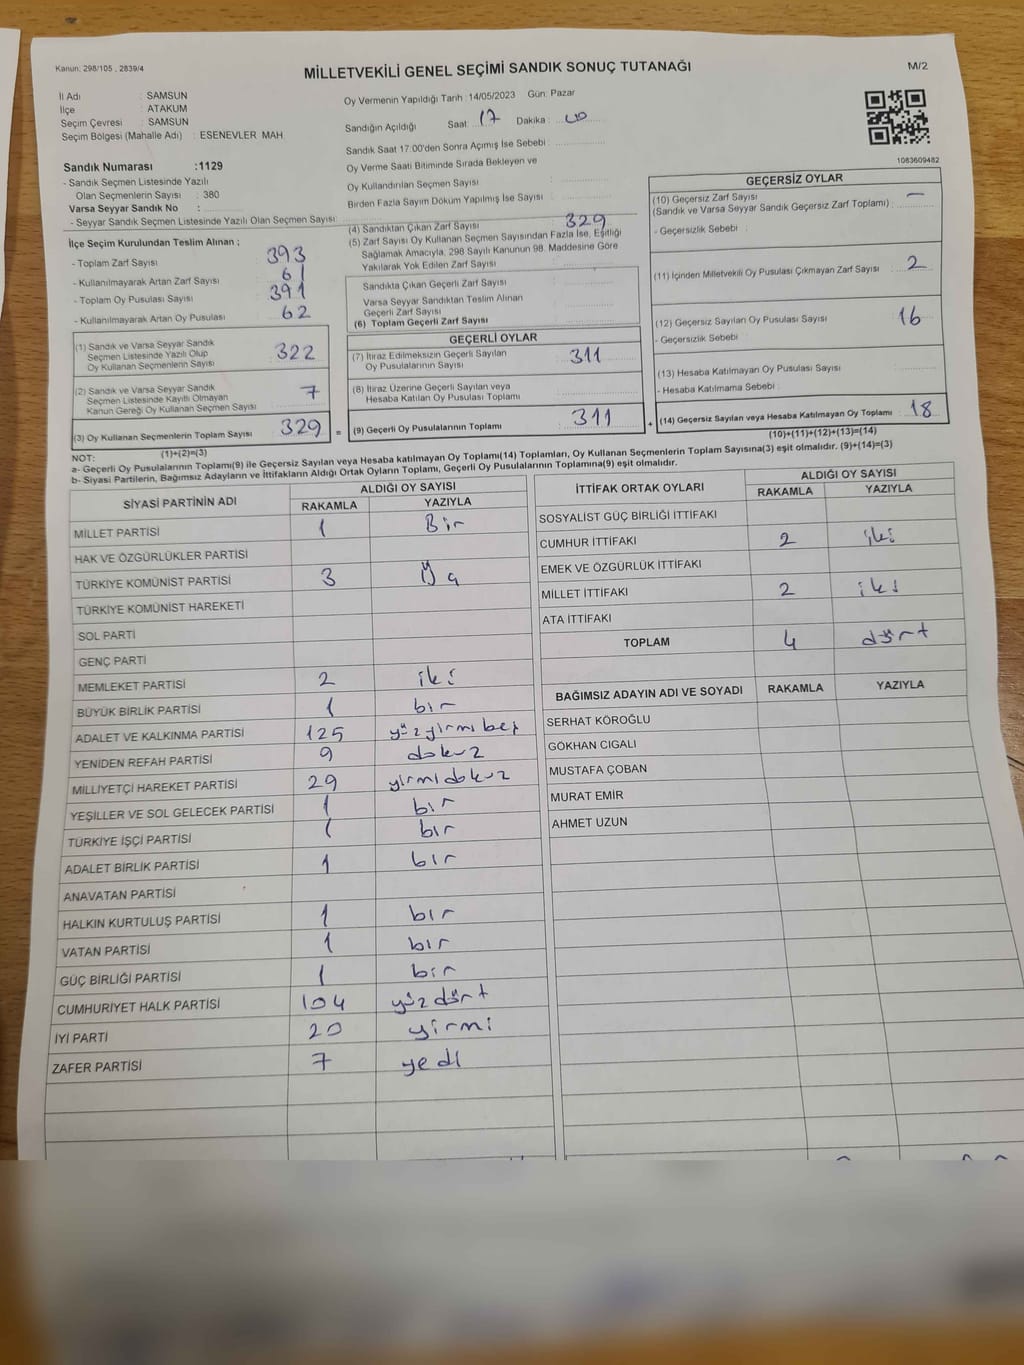 Kanun: 298/105 , 2839/4
MİLLETVEKİLİ GENEL SEÇİMİ SANDIK SONUÇ TUTANAĞI
M/2
İl Adı : SAMSUN
İlçe : ATAKUM
Seçim Çevresi : SAMSUN
Seçim Bölgesi (Mahalle Adı) : ESENEVLER MAH
Sandık Numarası :1129
- Sandık Seçmen Listesinde Yazılı
Olan Seçmenlerin Sayısı : 380
Varsa Seyyar Sandık No :
- Seyyar Sandık Seçmen Listesinde Yazılı Olan Seçmen Sayısı:
Oy Vermenin Yapıldığı Tarih :14/05/2023 Gün: Pazar
Sandığın Açıldığı Saat: 17 Dakika:
Sandık Saat 17:00'den Sonra Açımış İse Sebebi :
Oy Verme Saati Bitiminde Sırada Bekleyen ve
Oy Kullandırılan Seçmen Sayısı :
Birden Fazla Sayım Döküm Yapılmış İse Sayısı :
1083609482
İlçe Seçim Kurulundan Teslim Alınan ;
- Toplam Zarf Sayısı : 393
- Kullanılmayarak Artan Zarf Sayısı : 61
- Toplam Oy Pusulası Sayısı : 391
- Kullanılmayarak Artan Oy Pusulası : 62
(1) Sandık ve Varsa Seyyar Sandık
Seçmen Listesinde Yazılı Olup
Oy Kullanan Seçmenlerin Sayısı : 322
(2) Sandık ve Varsa Seyyar Sandık
Seçmen Listesinde Kayıtlı Olmayan
Kanun Gereği Oy Kullanan Seçmen Sayısı : 7
(3) Oy Kullanan Seçmenlerin Toplam Sayısı : 329 =
(1)+(2)=(3)
(4) Sandıktan Çıkan Zarf Sayısı : 329
(5) Zarf Sayısı Oy Kullanan Seçmen Sayısından Fazla İse, Eşitliği
Sağlamak Amacıyla, 298 Sayılı Kanunun 98. Maddesine Göre
Yakılarak Yok Edilen Zarf Sayısı :
Sandıkta Çıkan Geçerli Zarf Sayısı :
Varsa Seyyar Sandıktan Teslim Alınan
Geçerli Zarf Sayısı :
(6) Toplam Geçerli Zarf Sayısı :
GEÇERLİ OYLAR
(7) İtiraz Edilmeksizin Geçerli Sayılan
Oy Pusulalarının Sayısı : 311
(8) İtiraz Üzerine Geçerli Sayılan veya
Hesaba Katılan Oy Pusulası Toplamı :
(9) Geçerli Oy Pusulalarının Toplamı : 311 +
GEÇERSİZ OYLAR
(10) Geçersiz Zarf Sayısı
(Sandık ve Varsa Seyyar Sandık Geçersiz Zarf Toplamı) : –
- Geçersizlik Sebebi :
(11) İçinden Milletvekili Oy Pusulası Çıkmayan Zarf Sayısı : 2
(12) Geçersiz Sayılan Oy Pusulası Sayısı : 16
- Geçersizlik Sebebi :
(13) Hesaba Katılmayan Oy Pusulası Sayısı :
- Hesaba Katılmama Sebebi :
(14) Geçersiz Sayılan veya Hesaba Katılmayan Oy Toplamı : 18
(10)+(11)+(12)+(13)=(14)
NOT:
a- Geçerli Oy Pusulalarının Toplamı(9) ile Geçersiz Sayılan veya Hesaba katılmayan Oy Toplamı(14) Toplamları, Oy Kullanan Seçmenlerin Toplam Sayısına(3) eşit olmalıdır. (9)+(14)=(3)
b- Siyasi Partilerin, Bağımsız Adayların ve İttifakların Aldığı Ortak Oyların Toplamı, Geçerli Oy Pusulalarının Toplamına(9) eşit olmalıdır.
SİYASİ PARTİNİN ADI ALDIĞI OY SAYISI
RAKAMLA YAZIYLA
MİLLET PARTİSİ 1 Bir
HAK VE ÖZGÜRLÜKLER PARTİSİ
TÜRKİYE KOMÜNİST PARTİSİ 3
TÜRKİYE KOMÜNİST HAREKETİ
SOL PARTİ
GENÇ PARTİ
MEMLEKET PARTİSİ 2 iki
BÜYÜK BİRLİK PARTİSİ 1 bir
ADALET VE KALKINMA PARTİSİ 125 yüzyirmibeş
YENİDEN REFAH PARTİSİ 9 dokuz
MİLLİYETÇİ HAREKET PARTİSİ 29 yirmidokuz
YEŞİLLER VE SOL GELECEK PARTİSİ 1 bir
TÜRKİYE İŞÇİ PARTİSİ 1 bir
ADALET BİRLİK PARTİSİ 1 bir
ANAVATAN PARTİSİ
HALKIN KURTULUŞ PARTİSİ 1 bir
VATAN PARTİSİ 1 bir
GÜÇ BİRLİĞİ PARTİSİ 1 bir
CUMHURİYET HALK PARTİSİ 104 yüzdört
İYİ PARTİ 20 yirmi
ZAFER PARTİSİ 7 yedi
İTTİFAK ORTAK OYLARI ALDIĞI OY SAYISI
RAKAMLA YAZIYLA
SOSYALİST GÜÇ BİRLİĞİ İTTİFAKI
CUMHUR İTTİFAKI 2 iki
EMEK VE ÖZGÜRLÜK İTTİFAKI
MİLLET İTTİFAKI 2 iki
ATA İTTİFAKI
TOPLAM 4 dört
BAĞIMSIZ ADAYIN ADI VE SOYADI RAKAMLA YAZIYLA
SERHAT KÖROĞLU
GÖKHAN CIGALI
MUSTAFA ÇOBAN
MURAT EMİR
AHMET UZUN